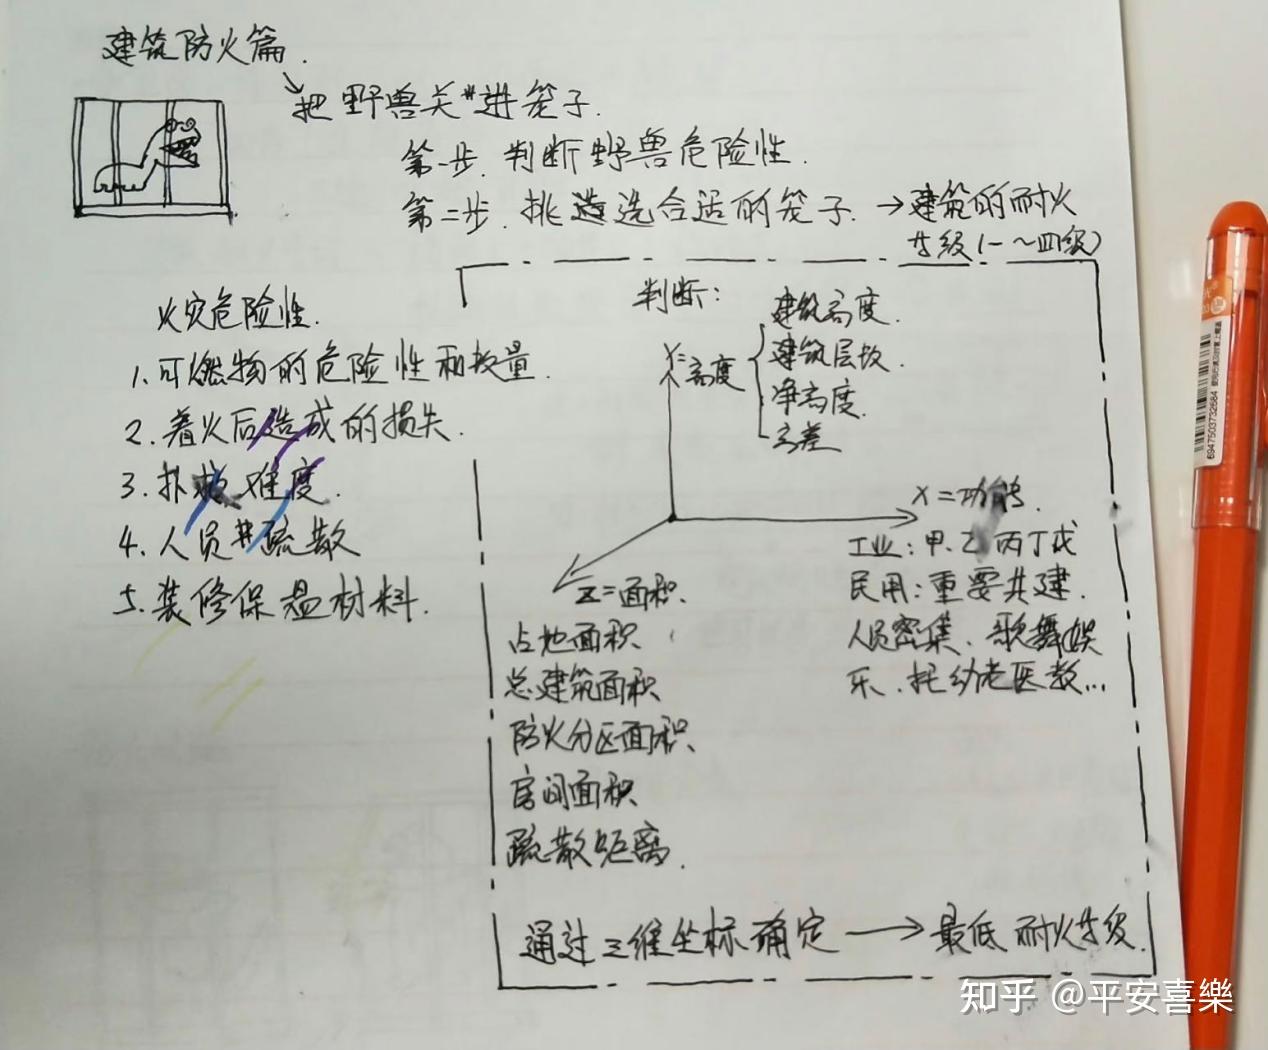 建筑防火篇.
把野兽关进笼子.
第一步.判断野兽危险性.
第二步.挑选合适的笼子.→建筑的耐火
等级(一~四级)
火灾危险性.
1.可燃物的危险性和数量.
2.着火后造成的损失.
3.扑救难度.
4.人员疏散
5.装修保温材料.
判断:
Y=高度
建筑高度.
建筑层数.
净高度.
高差
X=功能.
工业:甲.乙丙丁戊
民用:重要公建.
人员密集、歌舞娱
乐、托幼老医教...
Z=面积.
占地面积
总建筑面积
防火分区面积、
房间面积
疏散距离.
通过三维坐标确定→最低耐火等级.
6947503732684
知乎 @平安喜樂